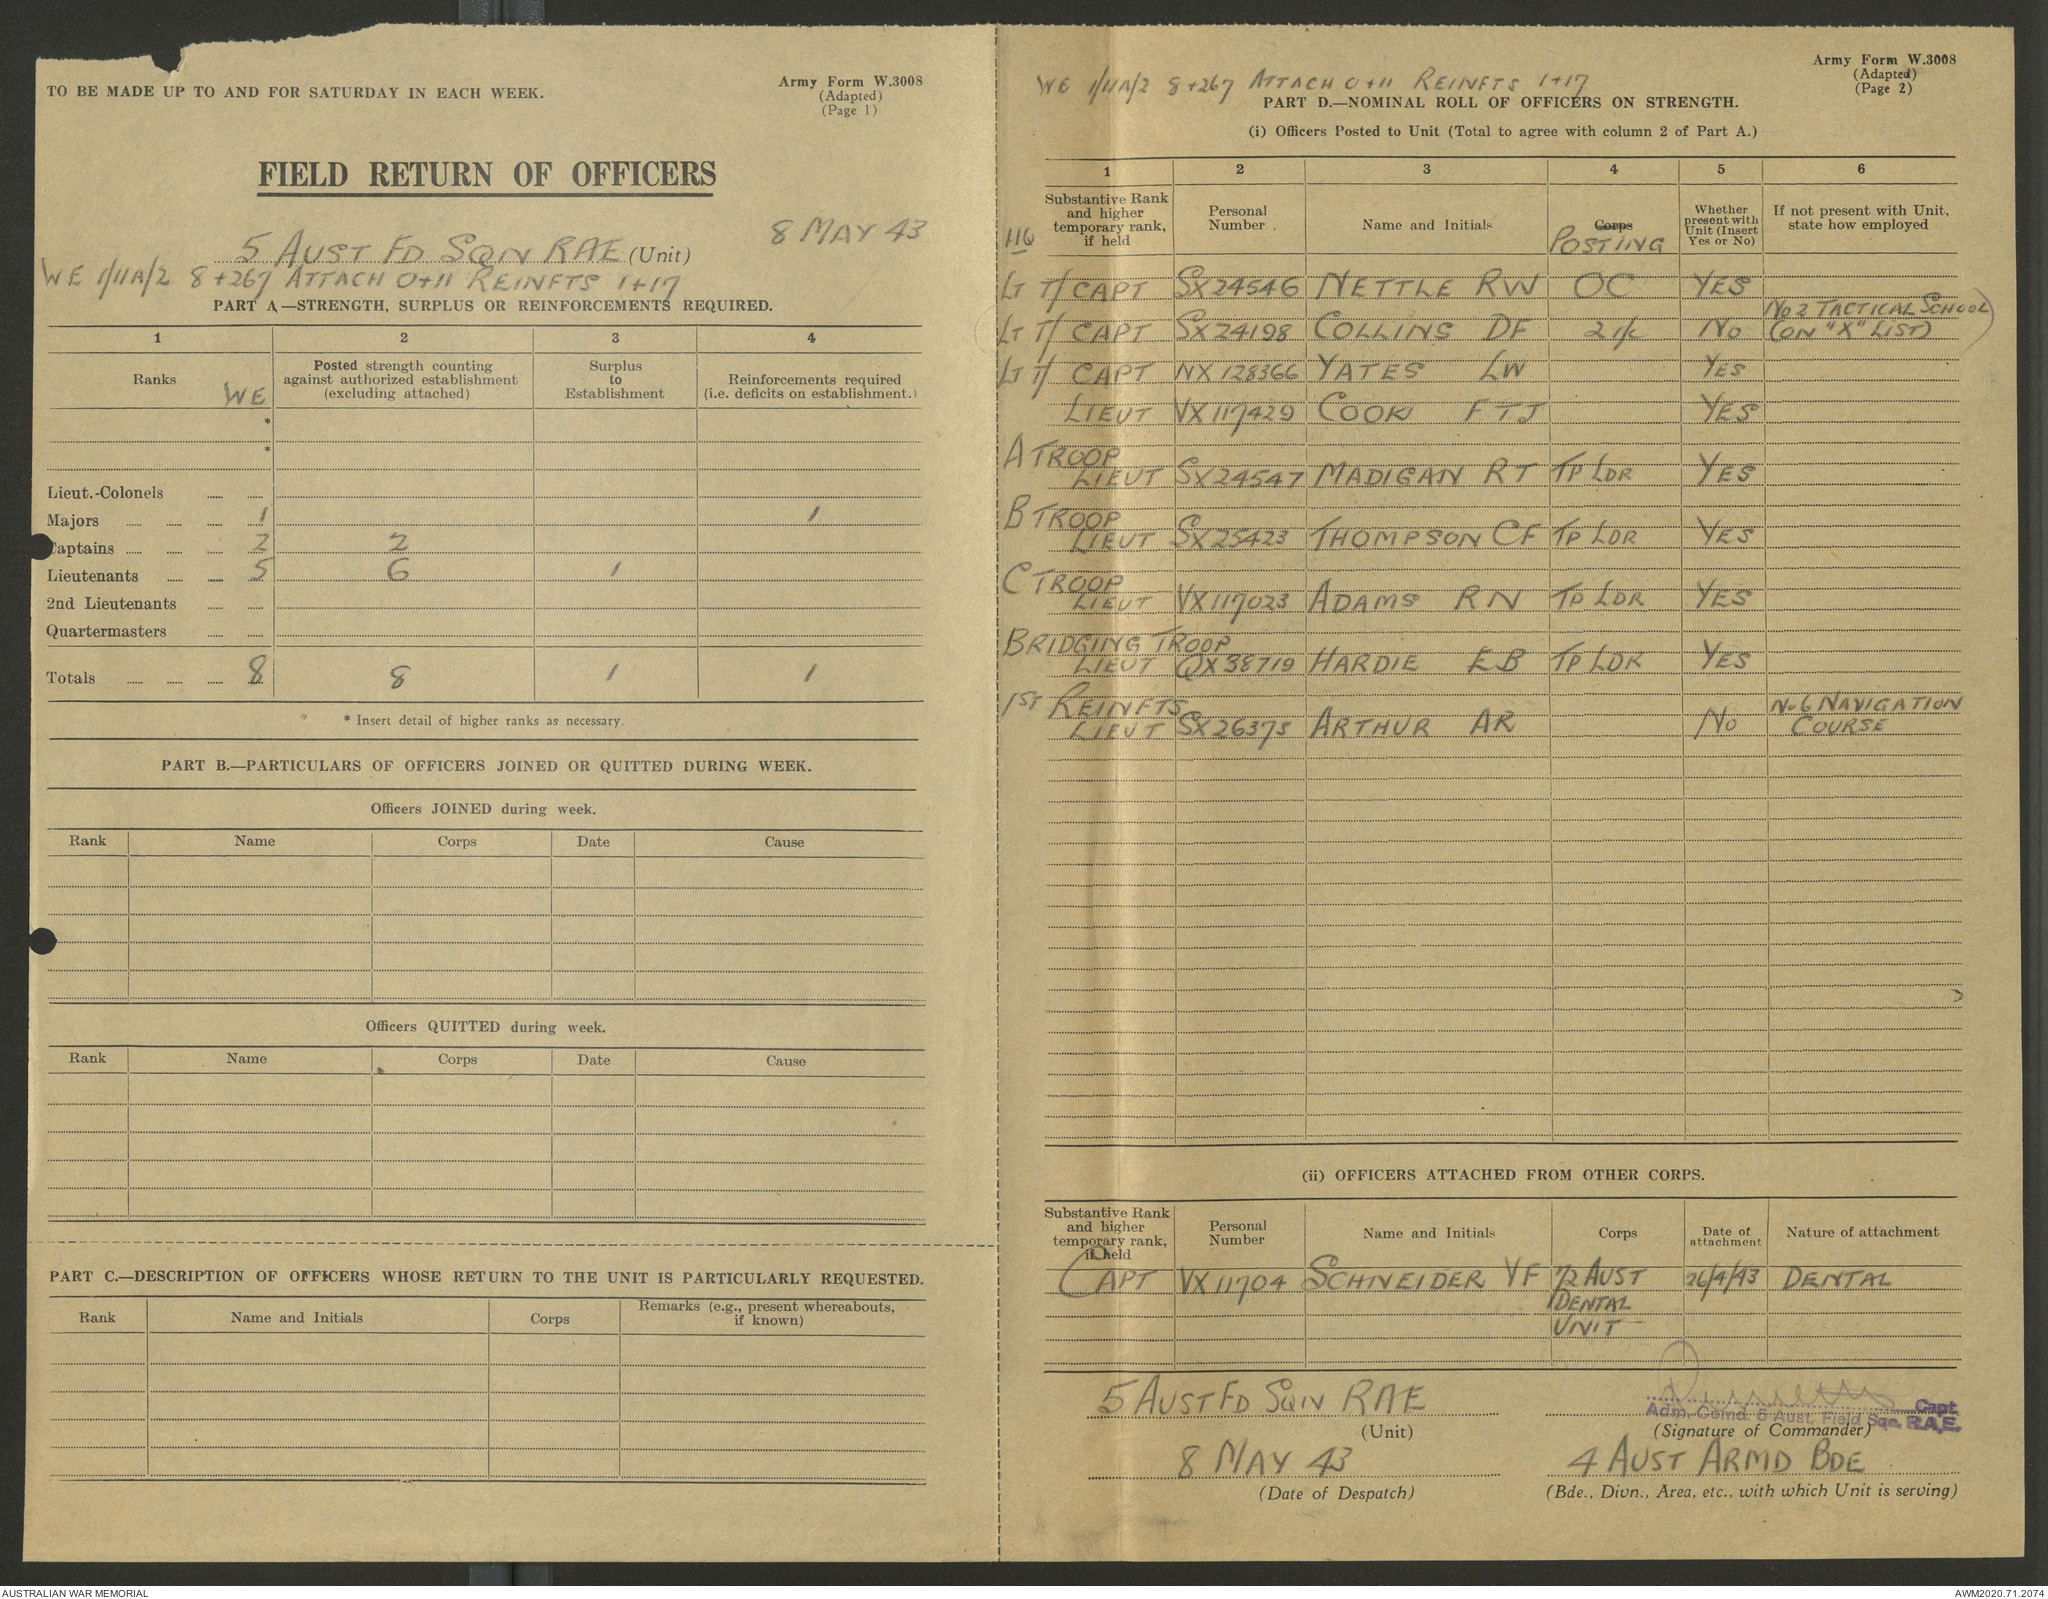 TO BE MADE UP TO AND FOR SATURDAY IN EACH WEEK.
Army Form W.3008
(Adapted)
(Page 1)
FIELD RETURN OF OFFICERS
8 MAY 43
5 AUST FD SQN RAE (Unit)
WE 1/11A/2 8+267 ATTACH 0+11 REINFTS 1+17
PART A.—STRENGTH, SURPLUS OR REINFORCEMENTS REQUIRED.
1 2 3 4
Ranks WE Posted strength counting against authorized establishment (excluding attached) Surplus to Establishment Reinforcements required (i.e. deficits on establishment.)
*
*
Lieut.-Colonels
Majors 1 1
Captains 2 2
Lieutenants 5 6 1
2nd Lieutenants
Quartermasters
Totals 8 8 1 1
* Insert detail of higher ranks as necessary.
PART B.—PARTICULARS OF OFFICERS JOINED OR QUITTED DURING WEEK.
Officers JOINED during week.
Rank Name Corps Date Cause
Officers QUITTED during week.
Rank Name Corps Date Cause
PART C.—DESCRIPTION OF OFFICERS WHOSE RETURN TO THE UNIT IS PARTICULARLY REQUESTED.
Rank Name and Initials Corps Remarks (e.g., present whereabouts, if known)
Army Form W.3008
(Adapted)
(Page 2)
WE 1/11A/2 8+267 ATTACH 0+11 REINFTS 1+17
PART D.—NOMINAL ROLL OF OFFICERS ON STRENGTH.
(i) Officers Posted to Unit (Total to agree with column 2 of Part A.)
1 2 3 4 5 6
Substantive Rank and higher temporary rank, if held Personal Number Name and Initials Corps POSTING Whether present with Unit (Insert Yes or No) If not present with Unit, state how employed
HQ
LT T/ CAPT SX24546 NETTLE RW OC YES
LT T/ CAPT SX24198 COLLINS DF 2 i/c NO No 2 TACTICAL SCHOOL (ON "X" LIST)
LT T/ CAPT NX128366 YATES LW YES
LIEUT VX117429 COOK FTJ YES
A TROOP
LIEUT SX24547 MADIGAN RT TP LDR YES
B TROOP
LIEUT SX25423 THOMPSON CF TP LDR YES
C TROOP
LIEUT VX117023 ADAMS RN TP LDR YES
BRIDGING TROOP
LIEUT QX38719 HARDIE EB TP LDR YES
1ST REINFTS
LIEUT SX26375 ARTHUR AR NO No 6 NAVIGATION COURSE
(ii) OFFICERS ATTACHED FROM OTHER CORPS.
Substantive Rank and higher temporary rank, if held Personal Number Name and Initials Corps Date of attachment Nature of attachment
CAPT VX11704 SCHNEIDER VF 1/2 AUST DENTAL UNIT 26/4/43 DENTAL
5 AUST FD SQN RAE
(Unit)
Capt
Adm. Comd. 5 Aust. Field Sqn. R.A.E.
(Signature of Commander)
8 MAY 43
(Date of Despatch)
4 AUST ARMD BDE
(Bde., Divn., Area, etc., with which Unit is serving)
AUSTRALIAN WAR MEMORIAL
AWM2020.71.2074